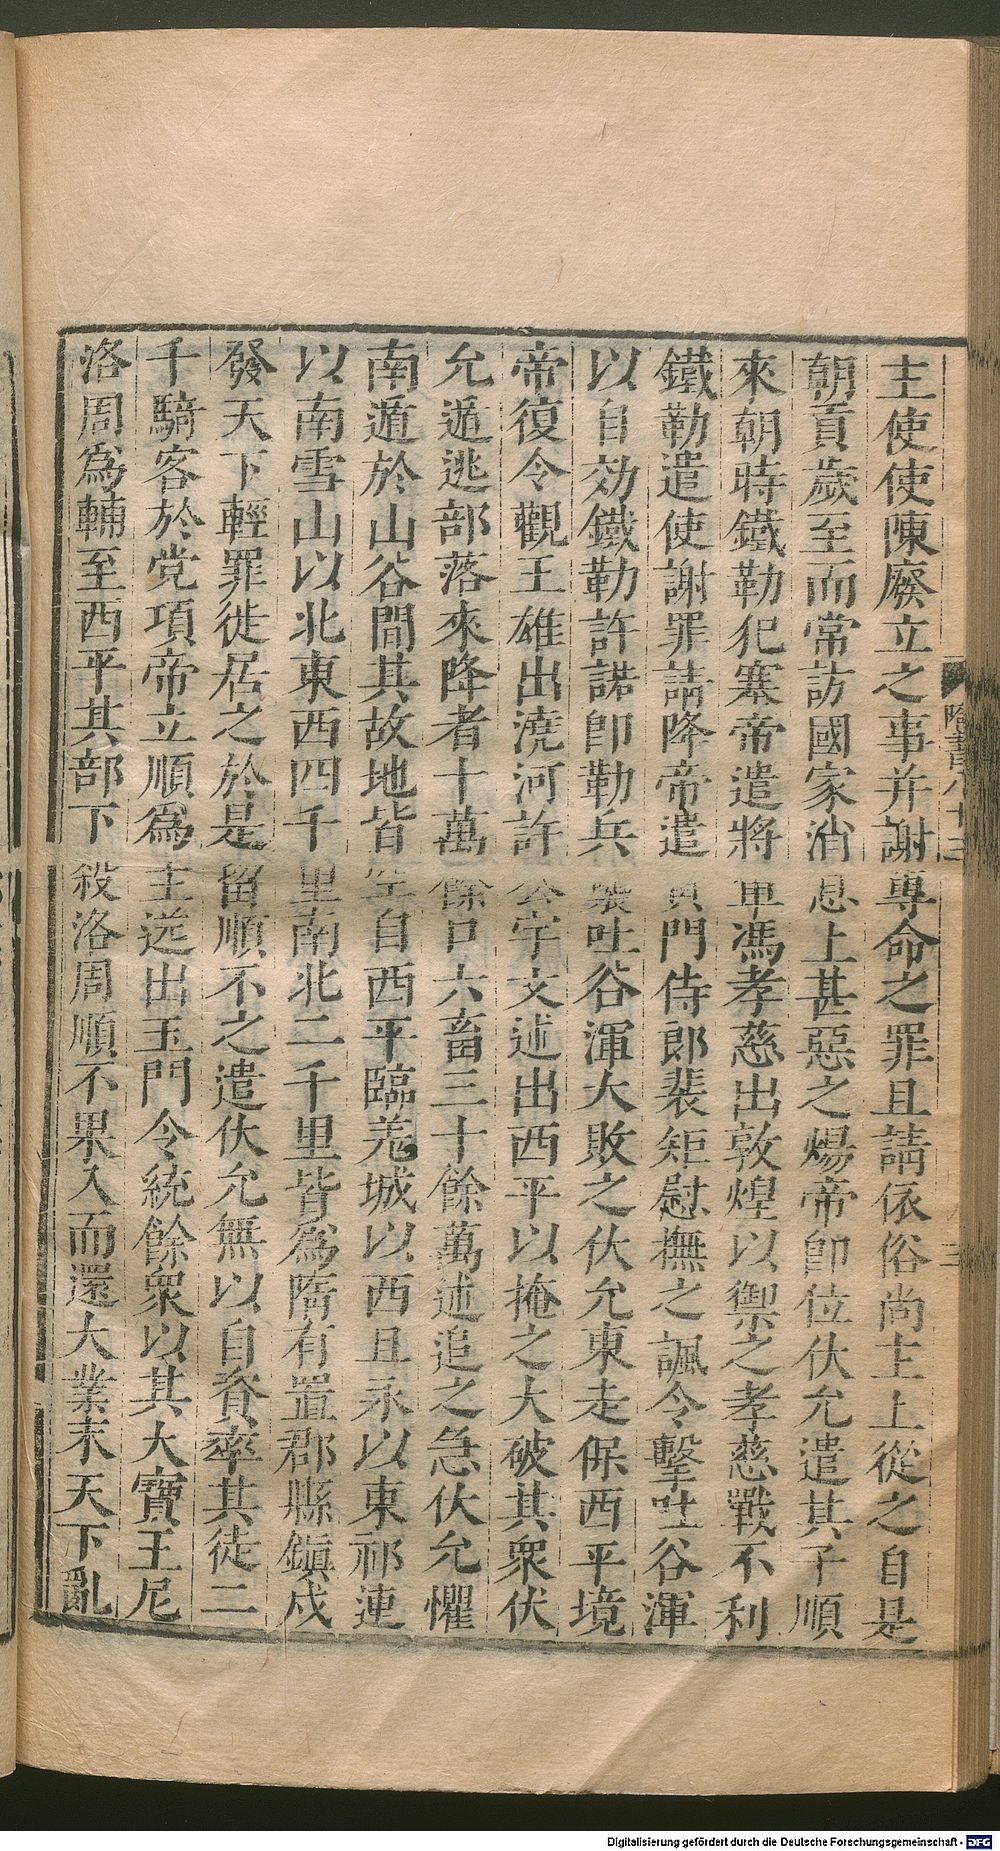 主使使陳廢立之事并謝專命之罪且請依俗尚主上從之自是
朝貢歲至而常訪國家消息上甚惡之煬帝卽位伏允遣其子順
來朝時鐵勒犯塞帝遣將軍馮孝慈出敦煌以禦之孝慈戰不利
鐵勒遣使謝罪請降帝遣黃門侍郎裴矩慰撫之諷令擊吐谷渾
以自効鐵勒許諾卽勒兵襲吐谷渾大敗之伏允東走保西平境
帝復令觀王雄出澆河許公宇文述出西平以掩之大破其衆伏
允遁逃部落來降者十萬餘口六畜三十餘萬述追之急伏允懼
南遁於山谷間其故地皆空自西平臨羌城以西且末以東祁連
以南雪山以北東西四千里南北二千里皆爲隋有置郡縣鎭戍
發天下輕罪徙居之於是留順不之遣伏允無以自資率其徒二
千騎客於党項帝立順爲主送出玉門令統餘衆以其大寶王尼
洛周爲輔至西平其部下殺洛周順不果入而還大業末天下亂
隋書八十三
三
Digitalisierung gefördert durch die Deutsche Forschungsgemeinschaft - DFG